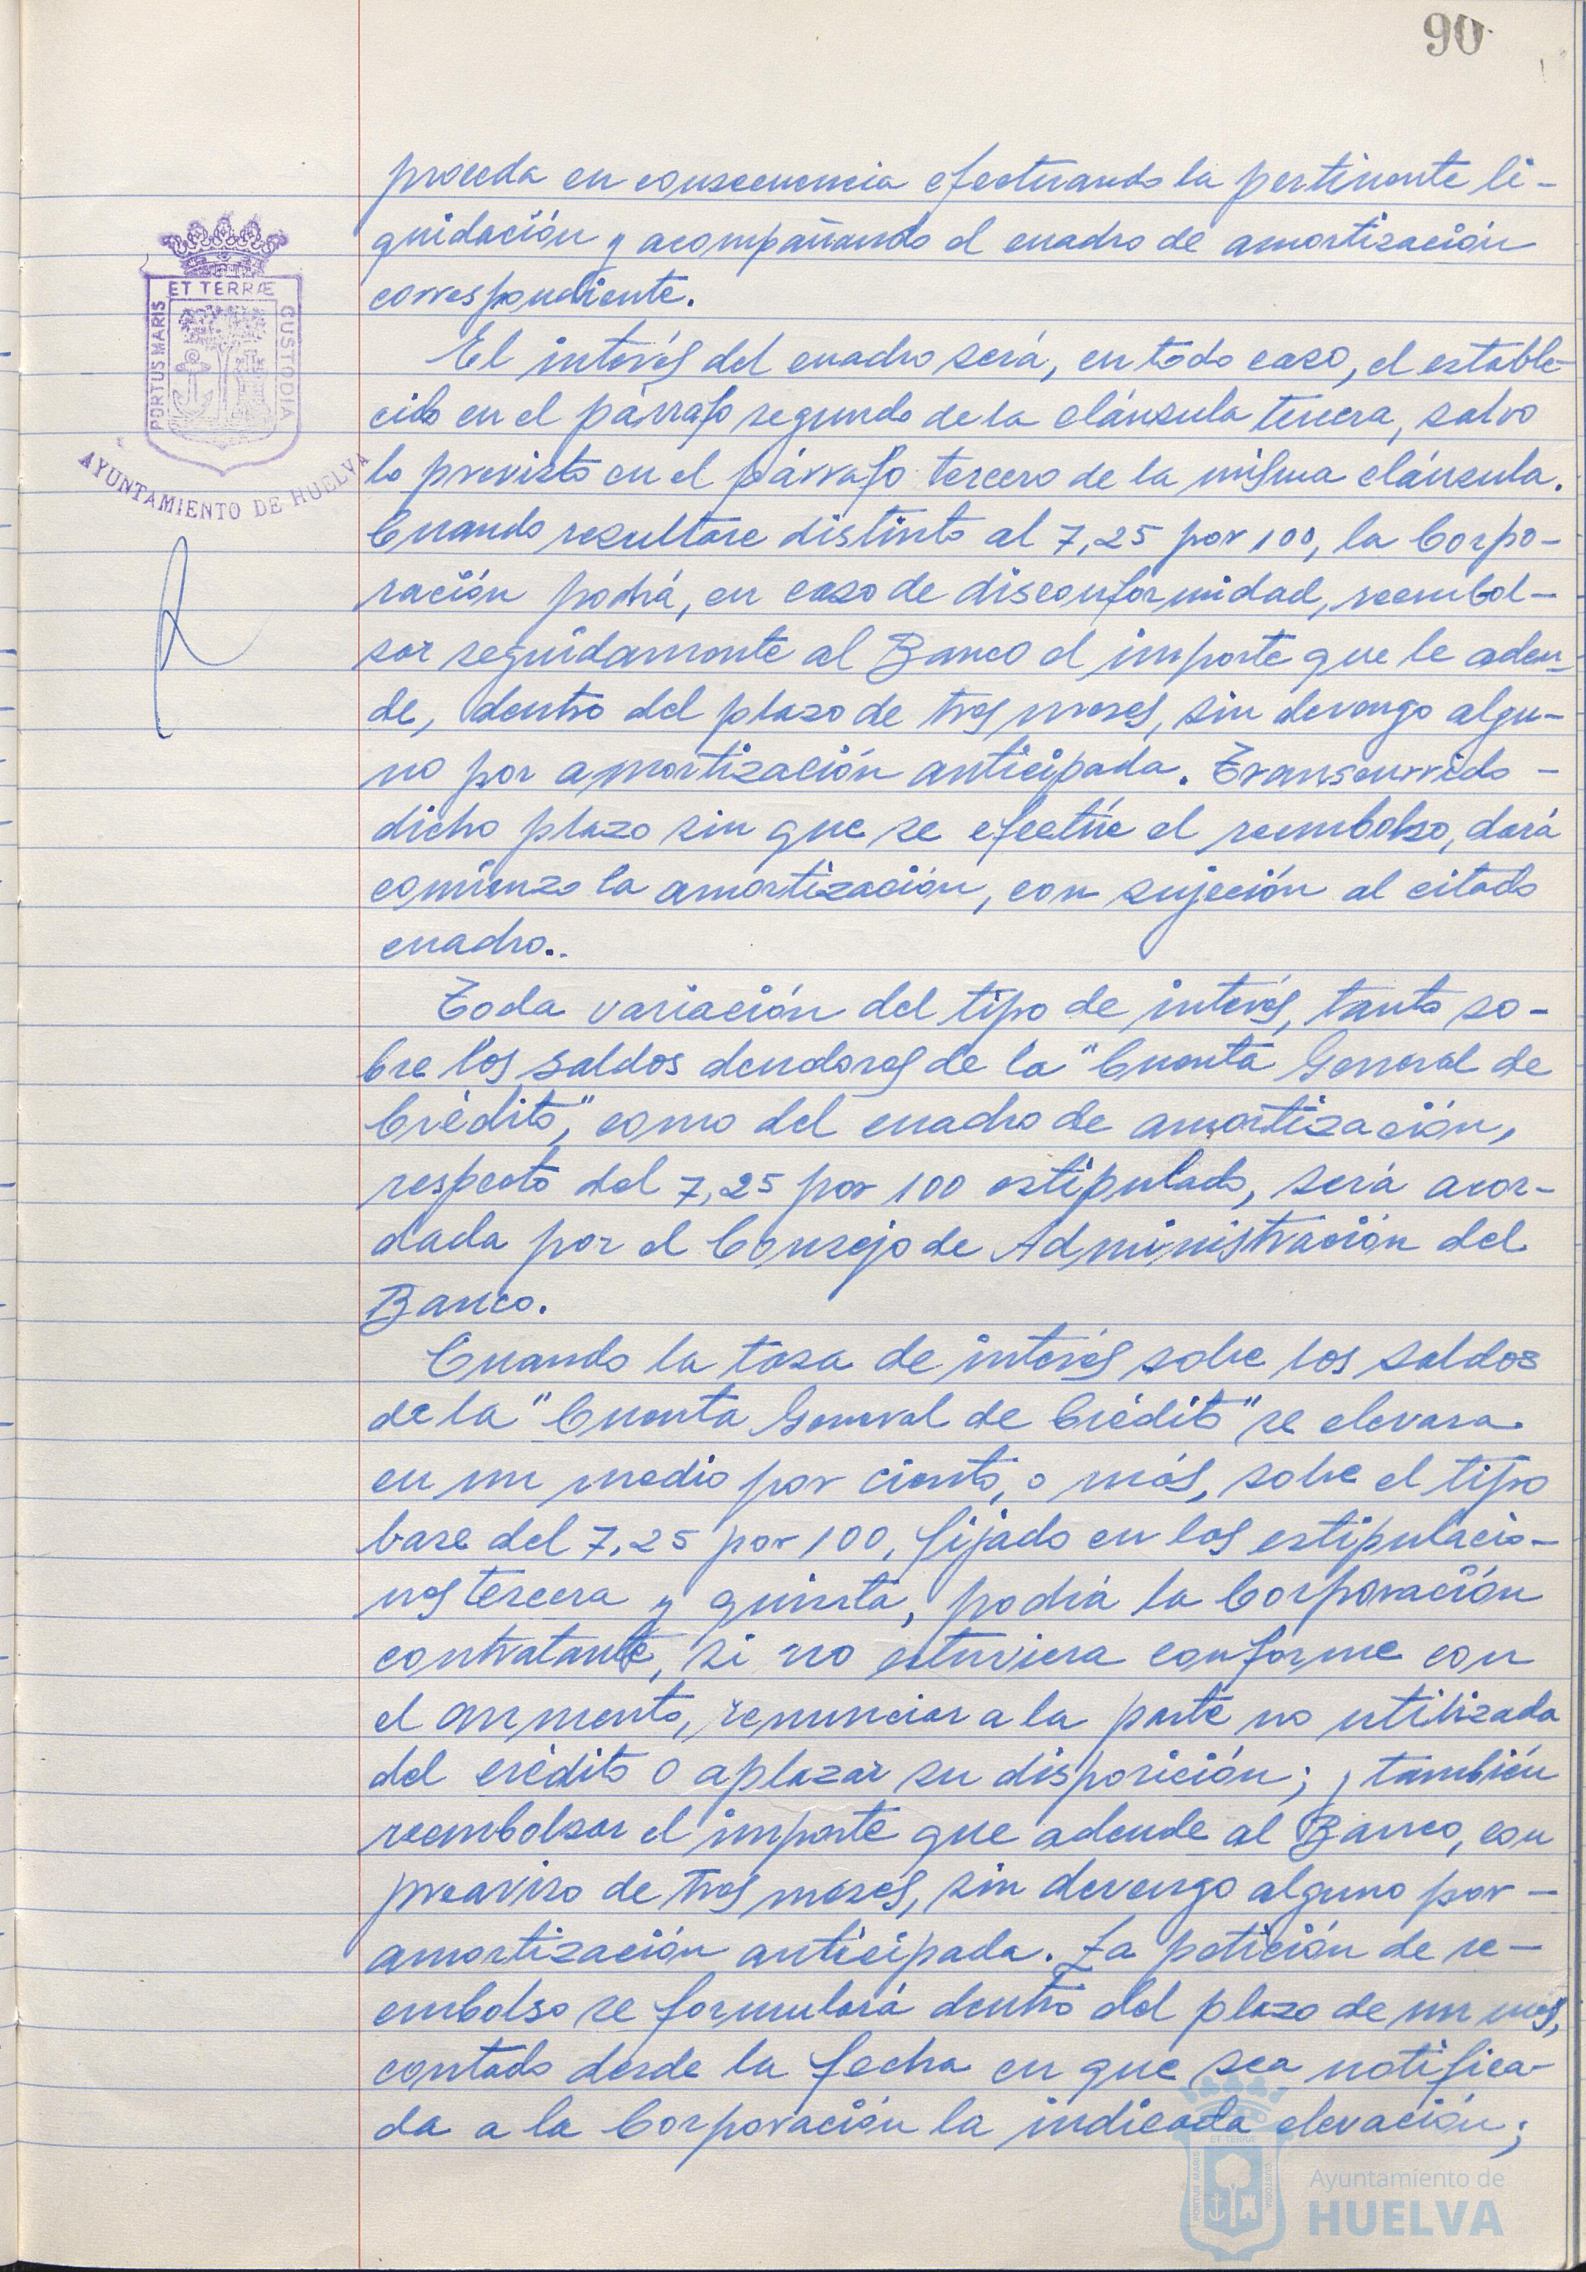 90
proceda en consecuencia efectuando la pertinente li-
quidación y acompañando el cuadro de amortización
correspondiente.
El interés del cuadro será, en todo caso, el estable-
cido en el párrafo segundo de la cláusula tercera, salvo
lo previsto en el párrafo tercero de la misma cláusula.
Cuando resultare distinto al 7,25 por 100, la Corpo-
ración podrá, en caso de disconformidad, reembol-
sar seguidamente al Banco el importe que le adeu-
de, dentro del plazo de tres meses, sin devengo algu-
no por amortización anticipada. Transcurrido -
dicho plazo sin que se efectúe el reembolso, dará
comienzo la amortización, con sujeción al citado
cuadro..
Toda variación del tipo de interés, tanto so-
bre los saldos deudores de la "Cuenta General de
Crédito", como del cuadro de amortización,
respecto del 7,25 por 100 estipulado, será acor-
dada por el Consejo de Administración del
Banco.
Cuando la tasa de interés sobre los saldos
de la "Cuenta General de Crédito" se elevara
en un medio por ciento, o más, sobre el tipo
base del 7,25 por 100, fijado en las estipulacio-
nes tercera y quinta, podrá la Corporación
contratante, si no estuviera conforme con
el aumento, renunciar a la parte no utilizada
del crédito o aplazar su disposición; y también
reembolsar el importe que adeude al Banco, con
preaviso de tres meses, sin devengo alguno por -
amortización anticipada. La petición de re-
embolso se formulará dentro del plazo de un mes,
contado desde la fecha en que sea notifica-
da a la Corporación la indicada elevación;
ET TERRÆ
PORTUS MARIS
CUSTODIA
AYUNTAMIENTO DE HUELVA
ET TERRÆ
PORTUS MARIS
CUSTODIA
Ayuntamiento de
HUELVA